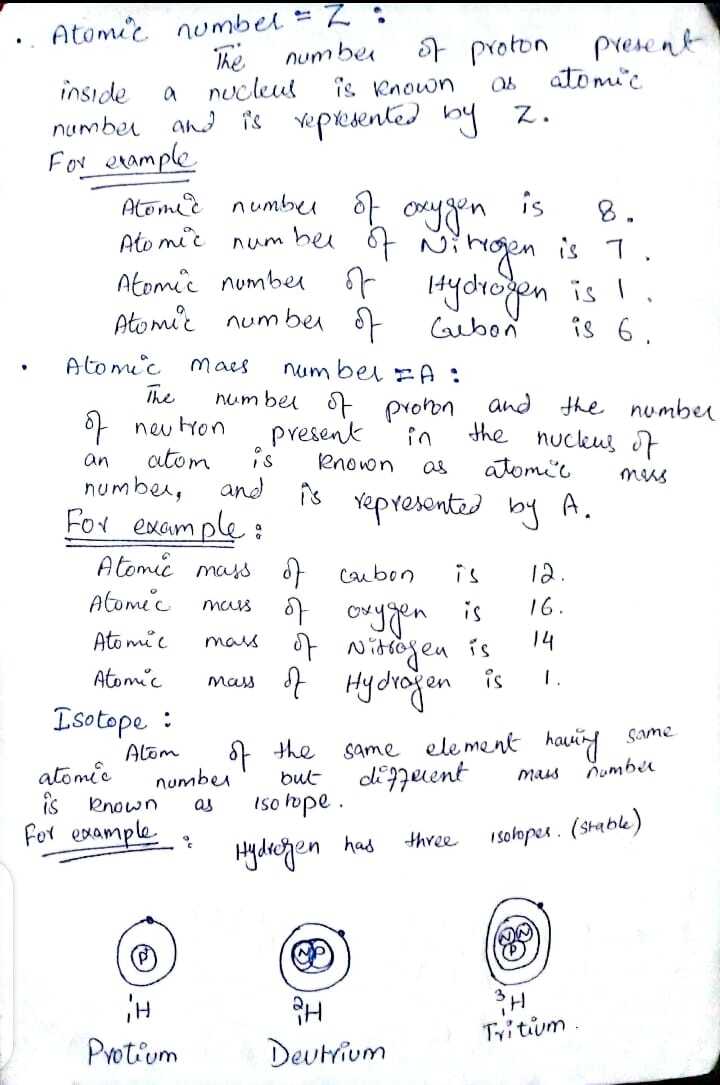 • Atomic number = Z :
The number of proton present
inside a nucleus is known as atomic
number and is represented by Z.
For example
Atomic number of oxygen is 8.
Atomic number of Nitrogen is 7.
Atomic number of Hydrogen is 1.
Atomic number of Carbon is 6.
• Atomic mass number = A :
The number of proton and the number
of neutron present in the nucleus of
an atom is known as atomic mass
number, and is represented by A.
For example :
Atomic mass of carbon is 12.
Atomic mass of oxygen is 16.
Atomic mass of Nitrogen is 14
Atomic mass of Hydrogen is 1.
Isotope :
Atom of the same element having same
atomic number but different mass number
is known as isotope.
For example : Hydrogen has three isotopes. (Stable)
P⁺ NP NN P
¹₁H ²₁H ³₁H
Protium Deutrium Tritium.